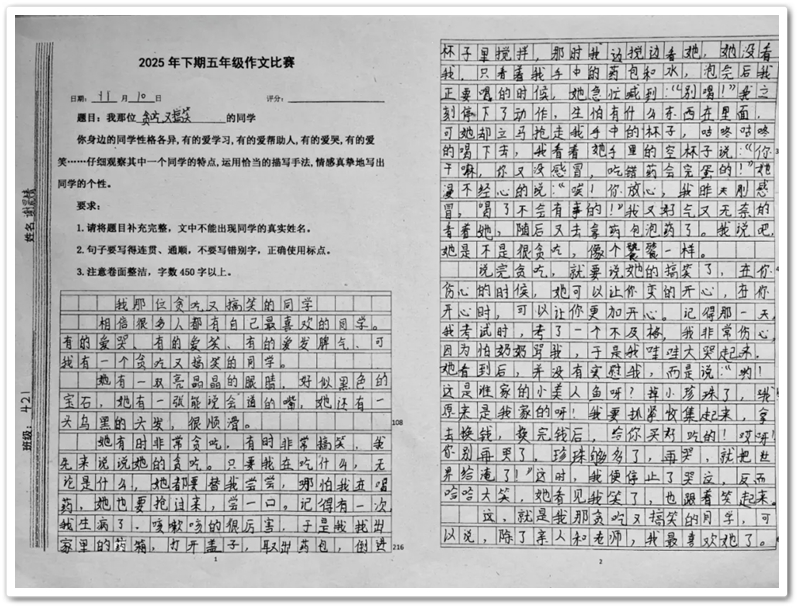 2025年下期五年级作文比赛
日期：11月10日 评分：
题目：我那位贪吃又搞笑的同学
你身边的同学性格各异,有的爱学习,有的爱帮助人,有的爱哭,有的爱
笑……仔细观察其中一个同学的特点,运用恰当的描写手法,情感真挚地写出
同学的个性。
要求：
1.请将题目补充完整，文中不能出现同学的真实姓名。
2.句子要写得连贯、通顺，不要写错别字，正确使用标点。
3.注意卷面整洁，字数450字以上。
姓名
班级：421
我那位贪吃又搞笑的同学
相信很多人都有自己最喜欢的同学。
有的爱哭、有的爱笑、有的爱发脾气、可
我有一个贪吃又搞笑的同学。
她有一双亮晶晶的眼睛，好似黑色的
宝石，她有一张能说会道的嘴，她还有一
头乌黑的头发，很顺滑。
108
她有时非常贪吃，有时非常搞笑，我
先来说说她的贪吃。只要我在吃什么，无
论是什么，她都要替我尝尝，哪怕我在喝
药，她也要抢过来，尝一口。记得有一次
我生病了，咳嗽咳的很厉害，于是我找出
家里的药箱，打开盖子，取出药包，倒进
216
1
杯子里搅拌，那时我边搅边看她，她没看
我，只看着我手中的药包和水，泡完后我
正要喝的时候，她急忙喊到：“别喝！”我立
刻停下了动作，生怕有什么东西在里面，
可她却立马抢走我手中的杯子，咕咚咕咚
的喝下去，我看着她手里的空杯子说：“你
干嘛，你又没感冒，吃错药会完蛋的！”她
漫不经心的说：“唉！你放心，我昨天刚感
冒，喝了不会有事的！”我又好气又无奈的
看着她，随后又去拿药包泡药了。我说吧，
她是不是很贪吃，像个饕餮一样。
说完贪吃，就要说她的搞笑了，在你
伤心的时候，她可以让你变的开心，在你
开心时，可以让你更加开心。记得那一天，
我考试时，考了一个不及格，我非常伤心，
因为怕奶奶骂我，于是我哇哇大哭起来，
她看到后，并没有安慰我，而是说：“哟！
这是谁家的小美人鱼呀？掉小珍珠了，哦
原来是我家的呀！我要抓紧收集起来，拿
去换钱，换完钱后，给你买好吃的！哎呀！
你别再哭了，珍珠够多了，再哭，就把世
界给淹了！”这时，我便停止了哭泣，反而
哈哈大笑，她看见我笑了，也跟着笑起来。
这，就是我那贪吃又搞笑的同学，可
以说，除了亲人和老师，我最喜欢她了。
2